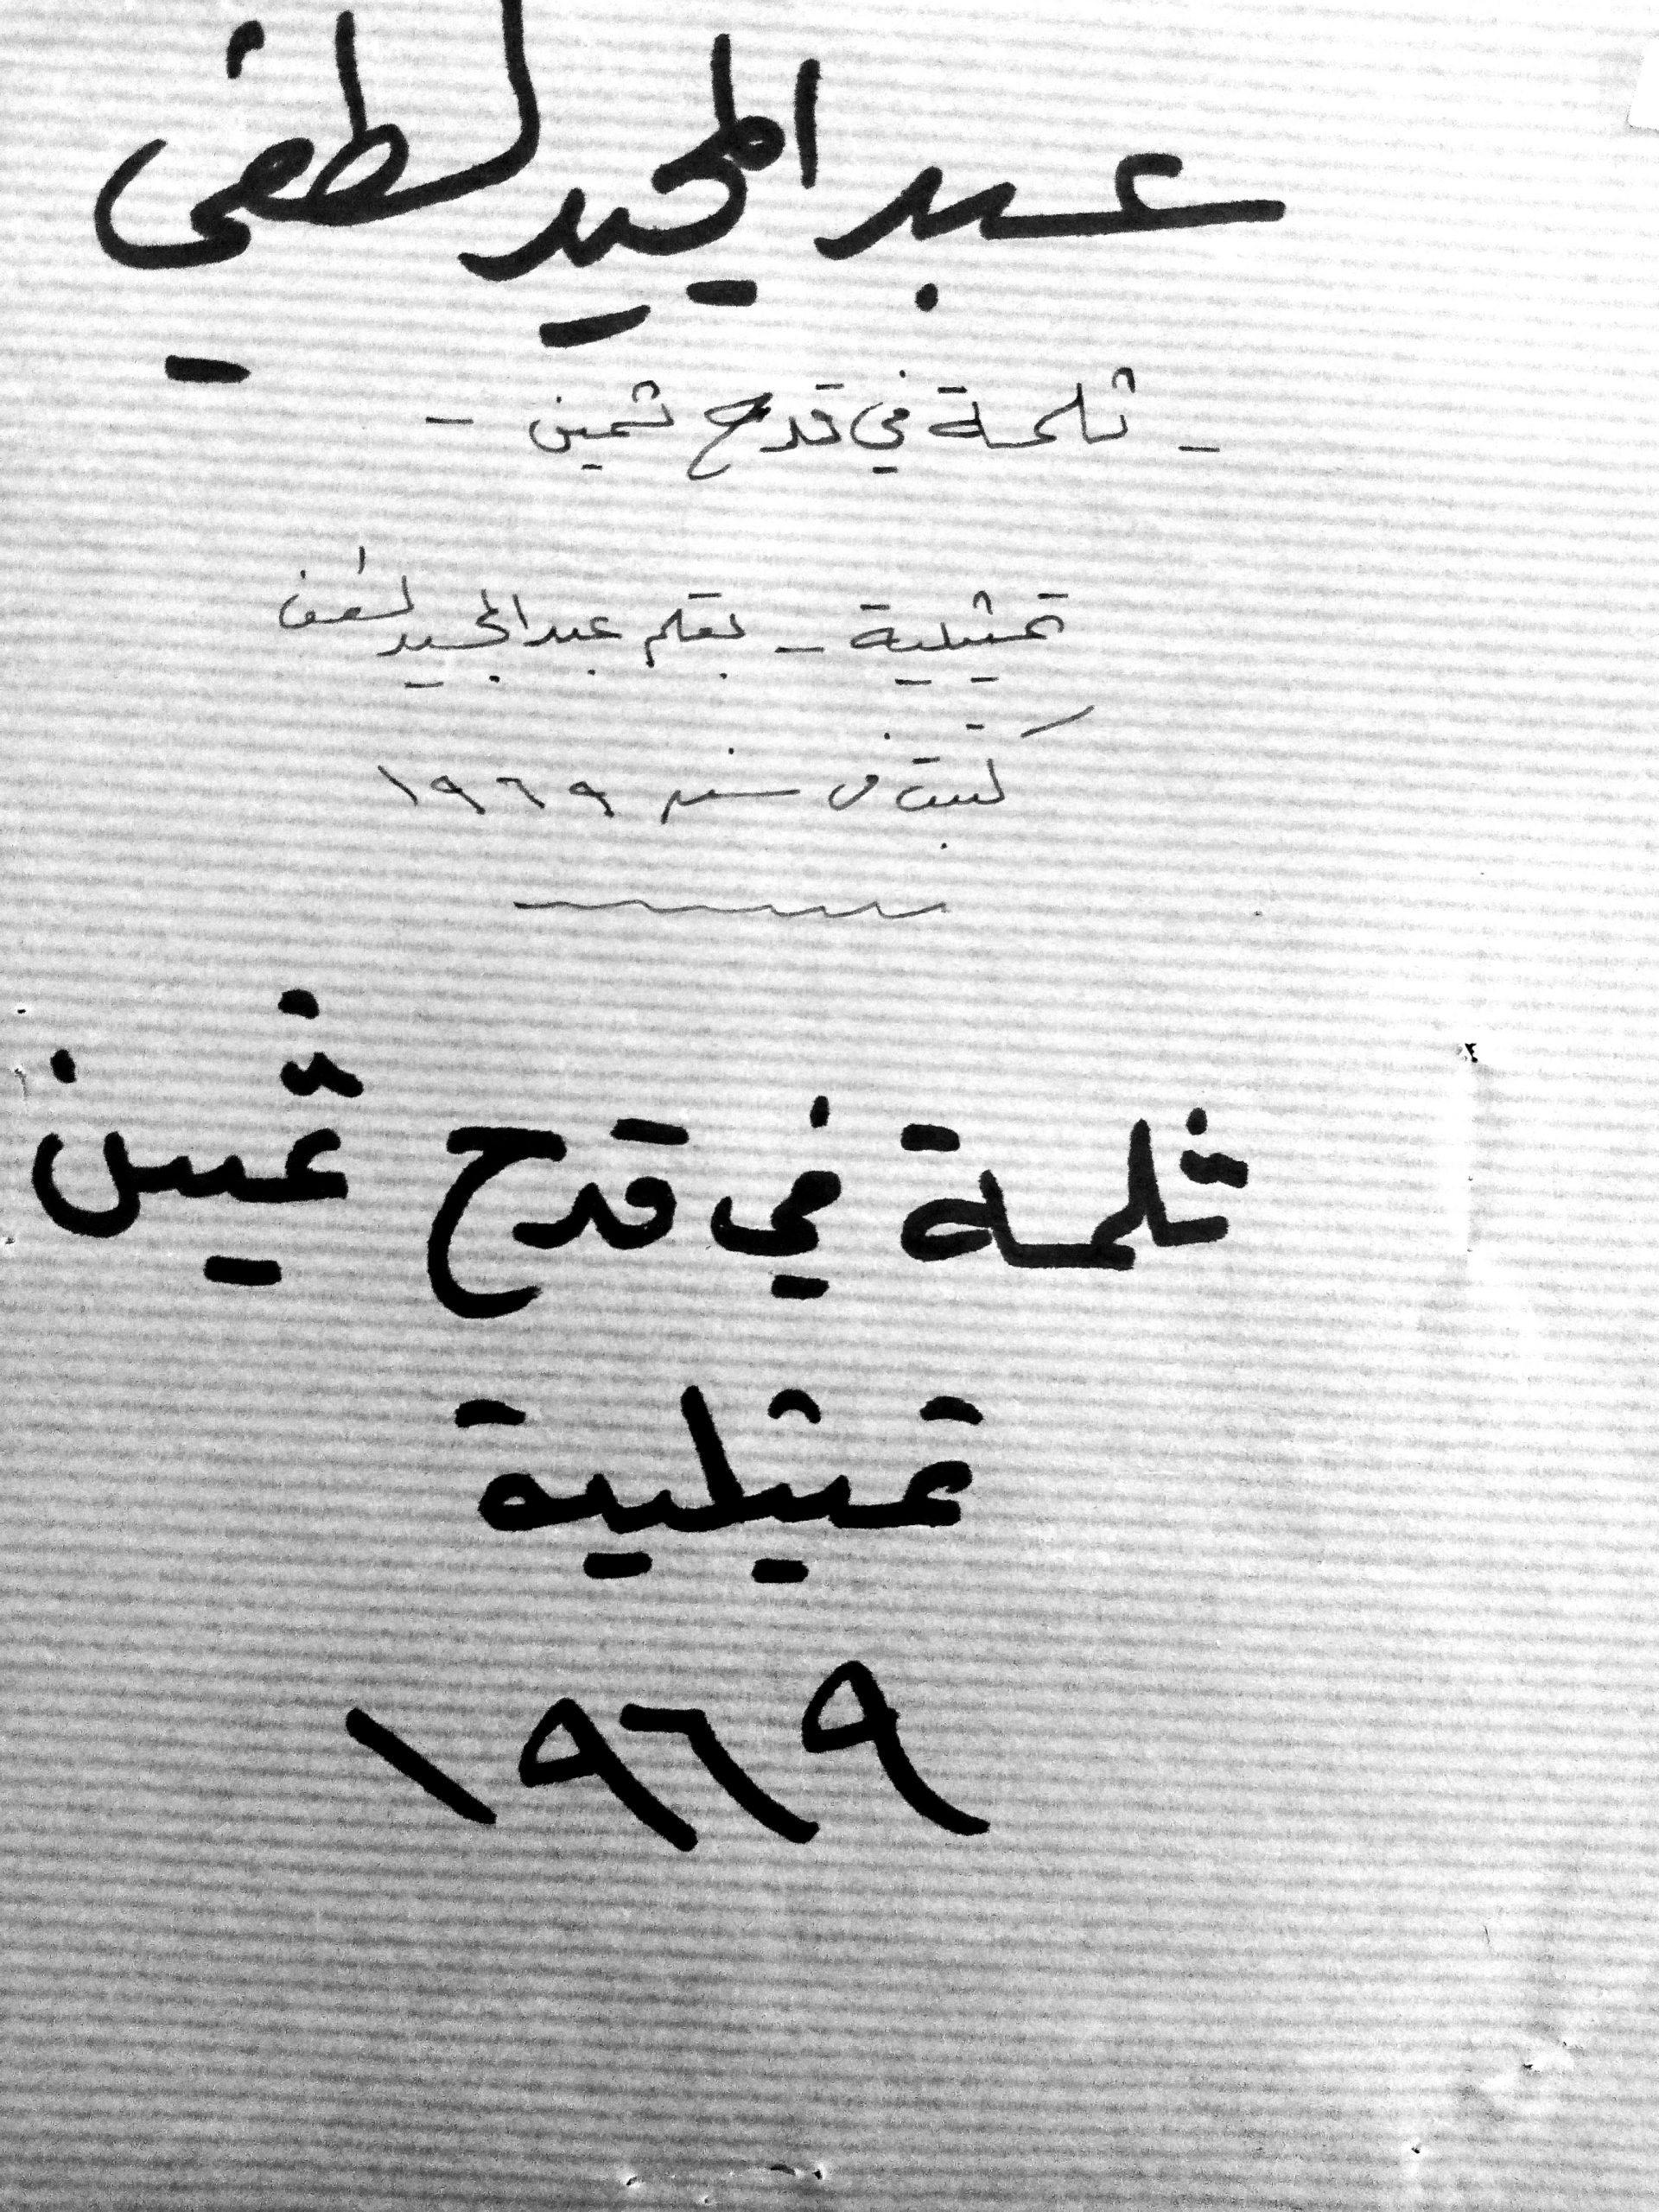 عبد المجيد لطفي
- ثلمة في قدح ثمين -
تمثيلية - بقلم عبد المجيد لطفي
كتبت في سنة ١٩٦٩
ثلمة في قدح ثمين
تمثيلية
١٩٦٩